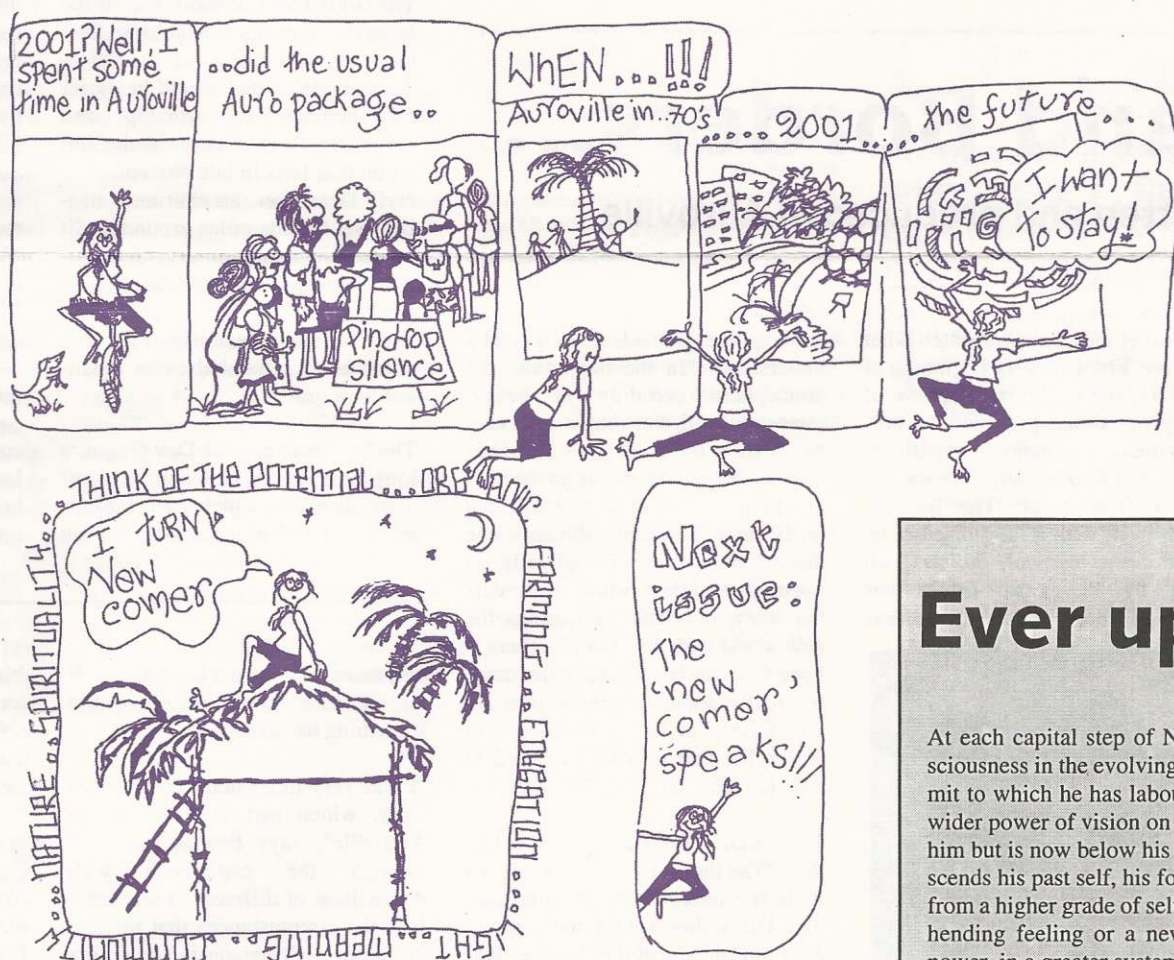 2001? Well, I
spent some
time in Auroville
..did the usual
Auro package..
Pin drop
silence
WhEN...!!!
Auroville in..70's
..... 2001
...the future..
I want
To stay!
THINK OF THE POTENTIAL...
FARMING..EDUCATION
MEANING....COMMUNITY
NATURE..SPIRITUALITY..
I TURN
New
comer
Next
issue:
The
'new
comer'
speaks!!!
Ever up
At each capital step of N
sciousness in the evolving
mit to which he has labou
wider power of vision on
him but is now below his
scends his past self, his fo
from a higher grade of sel
hending feeling or a nev
power, in a greater system